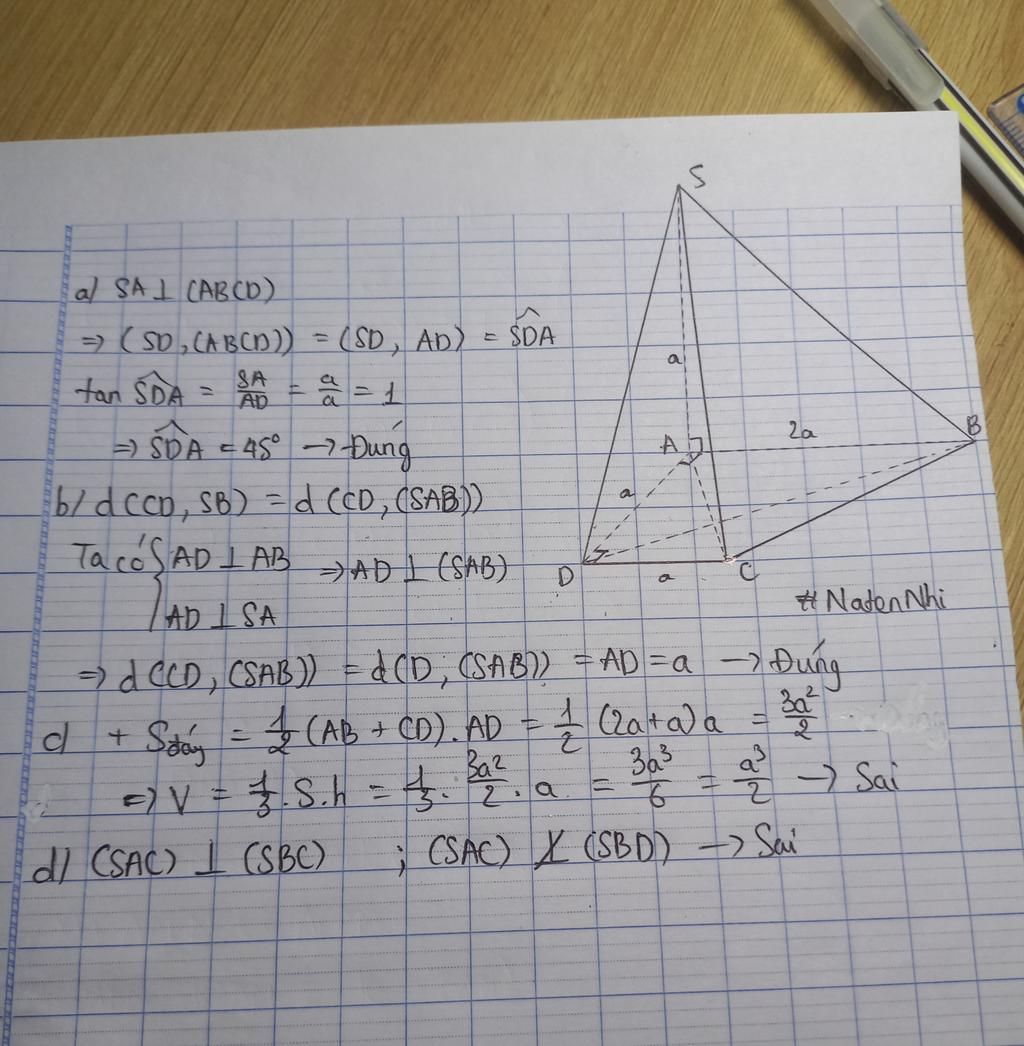 a) SA ⊥ (ABCD)
⇒ (SD, (ABCD)) = (SD, AD) = \widehat{SDA}
tan \widehat{SDA} = \frac{SA}{AD} = \frac{a}{a} = 1
⇒ \widehat{SDA} = 45° → Đúng
b/ d(CD, SB) = d(CD, (SAB))
Ta có { AD ⊥ AB ⇒ AD ⊥ (SAB)
AD ⊥ SA
⇒ d(CD, (SAB)) = d(D, (SAB)) = AD = a → Đúng
d + S_{đáy} = \frac{1}{2} (AB + CD). AD = \frac{1}{2} (2a+a)a = \frac{3a^2}{2}
⇒ V = \frac{1}{3}.S.h = \frac{1}{3}. \frac{3a^2}{2} . a = \frac{3a^3}{6} = \frac{a^3}{2} → Sai
d) (SAC) ⊥ (SBC) ; (SAC) ⊥̸ (SBD) → Sai
S
a
A
2a
B
a
D
a
C
#NatonNhi